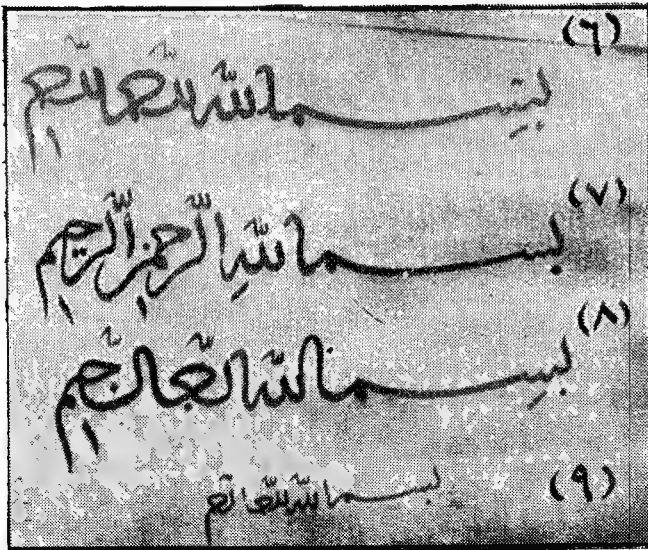 (٦)
بسم الله الرحمن الرحيم
(٧)
بسم الله الرحمن الرحيم
(٨)
بسم الله الرحمن الرحيم
(٩)
بسم الله الرحمن الرحيم